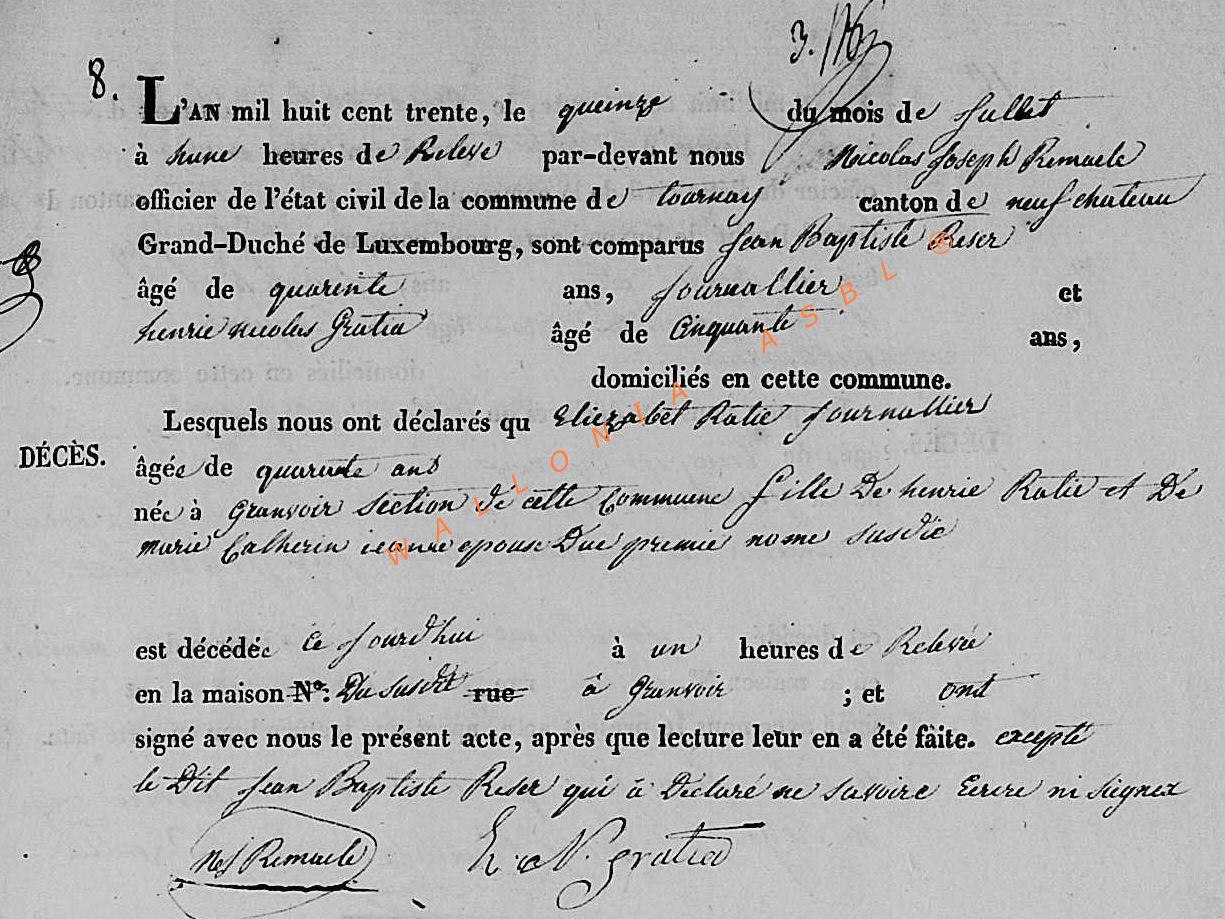 8.
L'AN mil huit cent trente, le queinze du mois de Jullet
à hune heures de Releve par-devant nous Nicolas Joseph Remacle
officier de l'état civil de la commune de tournay canton de neufchateau
Grand-Duché de Luxembourg, sont comparus Jean Baptiste Reser
âgé de quarente ans, Journallier et
henrie nicolas Gratia âgé de Cinquante ans,
domiciliés en cette commune.
Lesquels nous ont déclarés qu Eliezabet Ratie Journallier
DÉCÈS.
âgée de quarante ans
née à Granvoir section de cette Commune fille De henrie Ratie et De
marie Catherin epouse Due premie nome susdie
est décédée Ce Jourd'hui à un heures de Relevée
en la maison N°: Du susdit rue à Granvoir ; et ont
signé avec nous le présent acte, après que lecture leur en a été faite. excepté
le Dit Jean Baptiste Reser qui à Déclaré ne savoire Ecrire ni signer
Nj Remacle H. N. gratia
WALLONIA ASBL ®